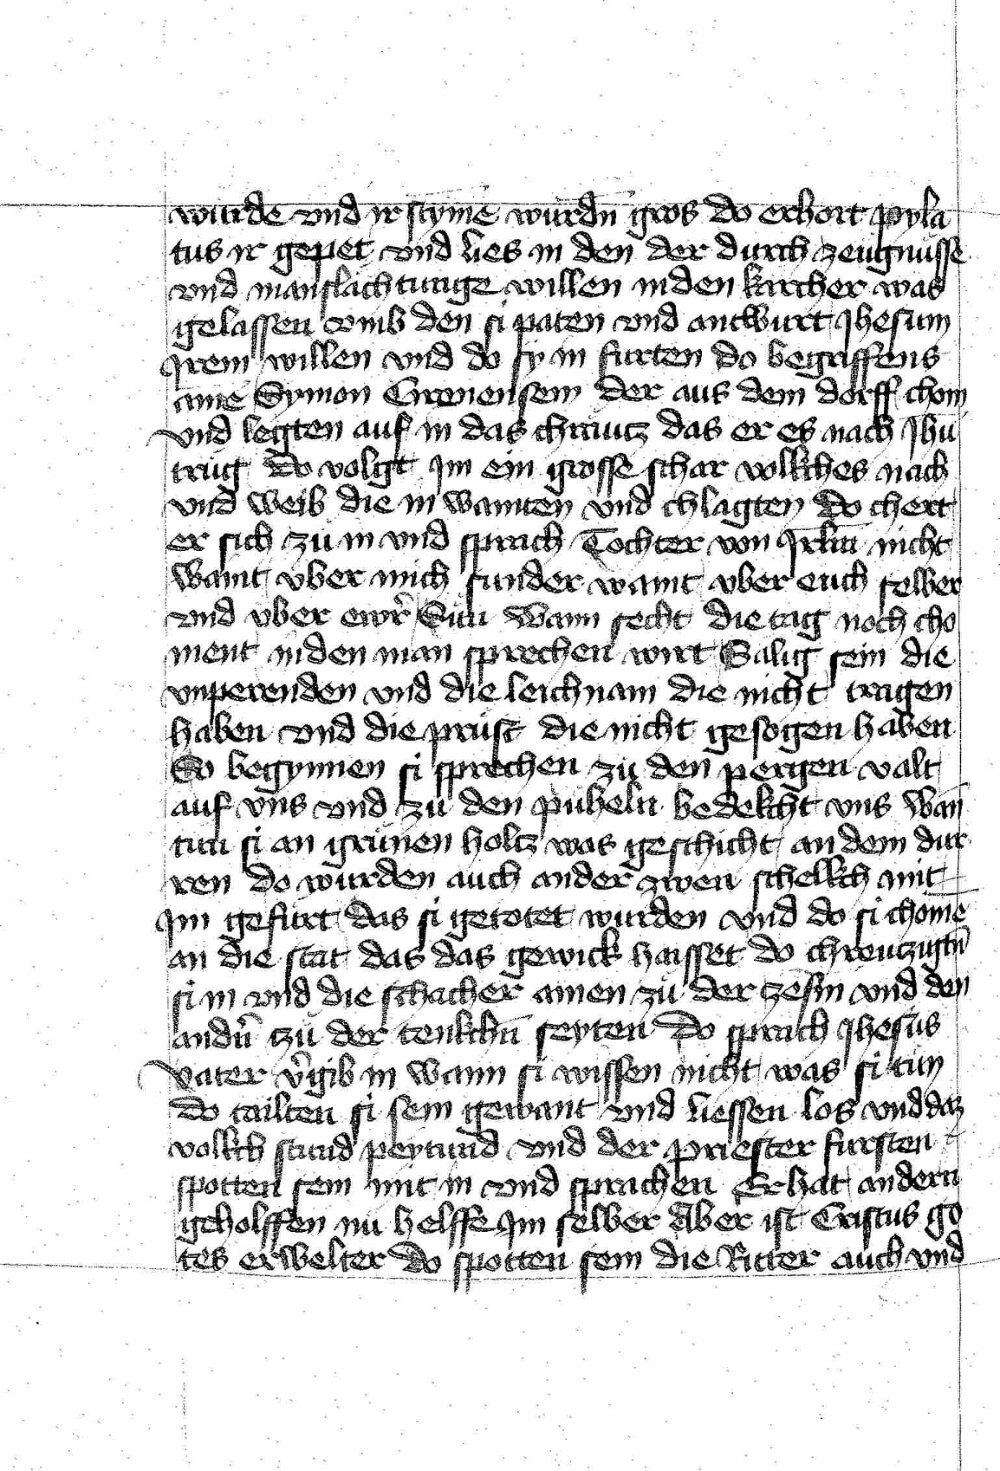 wurde vnd ir stymē wurdn̄ gros do erhort pyla
tus ir gepet vnd lies in den der durch zeugnüsse
vnd manslachtunge willen in den kärcher was
gelassen vmb den si paten vnd antwurt Jhesum
Irem willen vnd do sy in furten do begriffens
ainē Symon Cirenensem der aus dem dorff chom
vnd legten auf in das chräutz das er es nach Jhū
trüg do volgt im ein grosse schar volkches nach
vnd weib die in wainten vnd chlagten do chert
er sich zü in vnd sprach Tochter von Jrlm̄ nicht
waint vber mich sunder waint vber euch selber
vnd vber ewr̄ Sün wann secht die tag noch cho
ment in den man sprechen wirt Sälig sein die
vnperenden vnd die leichnam die nicht tragen
haben vnd die prüst die nicht gesogen haben
So begynnen si sprechen zü den pergen valt
auf vns vnd zü den püheln bedekcht vns wan̄
tün si an grünen holtz was geschicht an dem dür
ren do wurden auch ander zwen schelkch mit
Im gefürt das si getötet wurden vnd do si chomē
an die stat das das gewick haisset do chreutzigtn̄
si in vnd die schacher ainen zü der zesm vnd den
andn̄ zü der tenkchn̄ seyten Do sprach Jhesus
vater v̄gib in wann si wissen nicht was si tün
do tailten si sein gewant vnd liessen los vnd daz
volkch stund peytund vnd der priester fürsten
spotten sein mit in vnd sprachen Er hat andern
geholffen nu helffe Im selber Aber ist Cristus go
tes erwelter do spotten sein die Ritter auch vnd